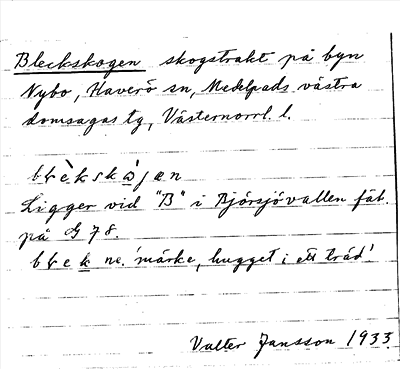 Bleckskogen skogstrakt på byn
Nybo, Haverö sn, Medelpads västra
domsagas tg, Västernorrl. l.
Ligger vid "B" i Björsjövallen fäb.
på G 78.
ne. 'märke, hugget i ett träd'
Valter Jansson 1933.